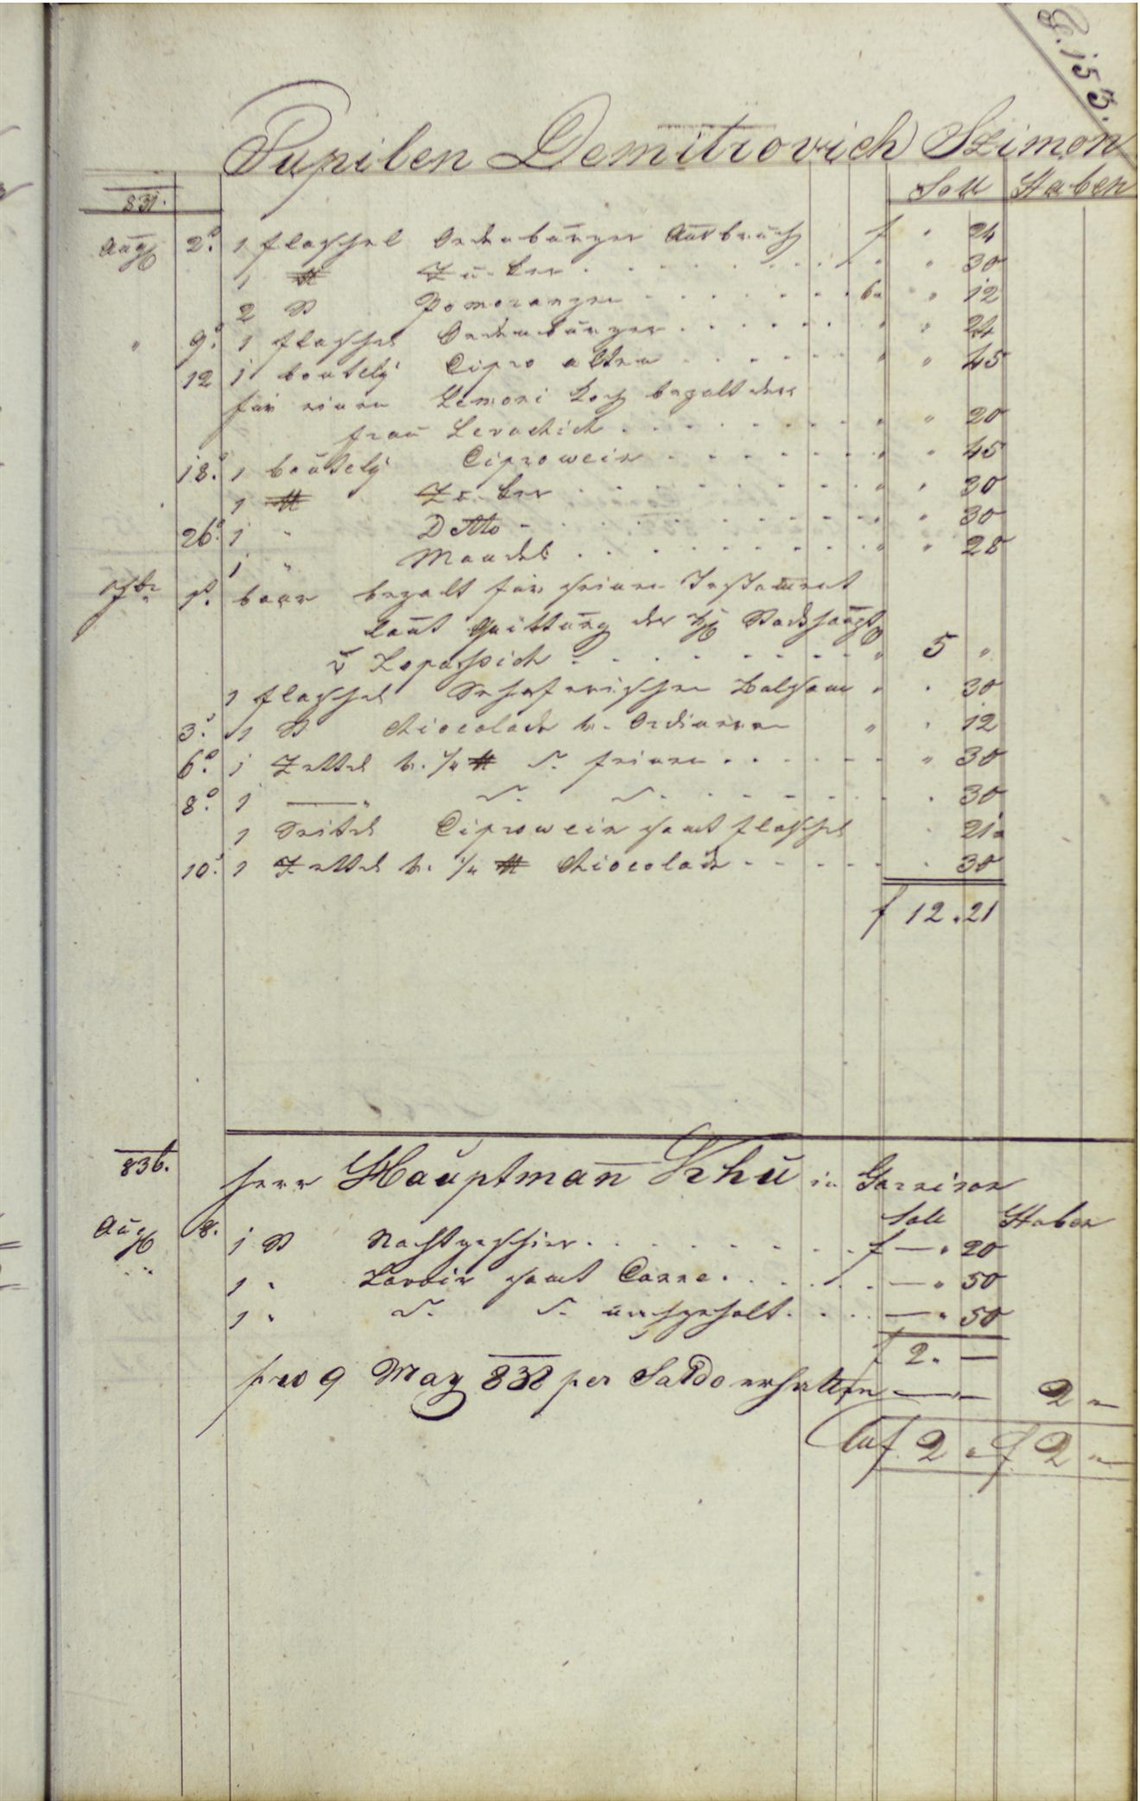 P. 155.
Pupilen Demitrovich Szimon
831. Soll Haben
Aug 2. 1 flaschel Oedenburger Ausbruch f " 24
1 ℔ Zucker " " 30
2 St Pomeranzen 6x " 12
" 9. 1 flaschel Oedenburger " " 24
12 1 boutely Cipro alten " " 45
für einen Lemoni bezalt der
frau Levachich " " 20
18. 1 boutely Ciprowein " " 45
1 ℔ Zucker " " 30
26. 1 " Detto " " 30
1 " Mandel " " 28
7br 1. baar bezalt für seinen Testament
laut Quittung der Stadthaupt
" 5 "
1 flaschel Balsam " " 30
3. 1 St Chiocolade v. Ordinären " " 12
6. 1 Zettel v. 1/4 ℔ d. feinen " 30
8. 1 — " d. d. " 30
1 Seitel Ciprowein samt flaschel " 21
10. 1 Zettel v. 1/4 ℔ Chiocolade " 30
f 12.21
836. Herr Hauptman Khü in Garnison
Soll Haben
Aug 8. 1 St Nachtgeschier f — " 20
1 " Lavoir samt Canne — " 50
1 " d. d. — " 50
f 2. —
9 May 838 per Saldo erhalten — " — 2 "
f 2 " f 2 "